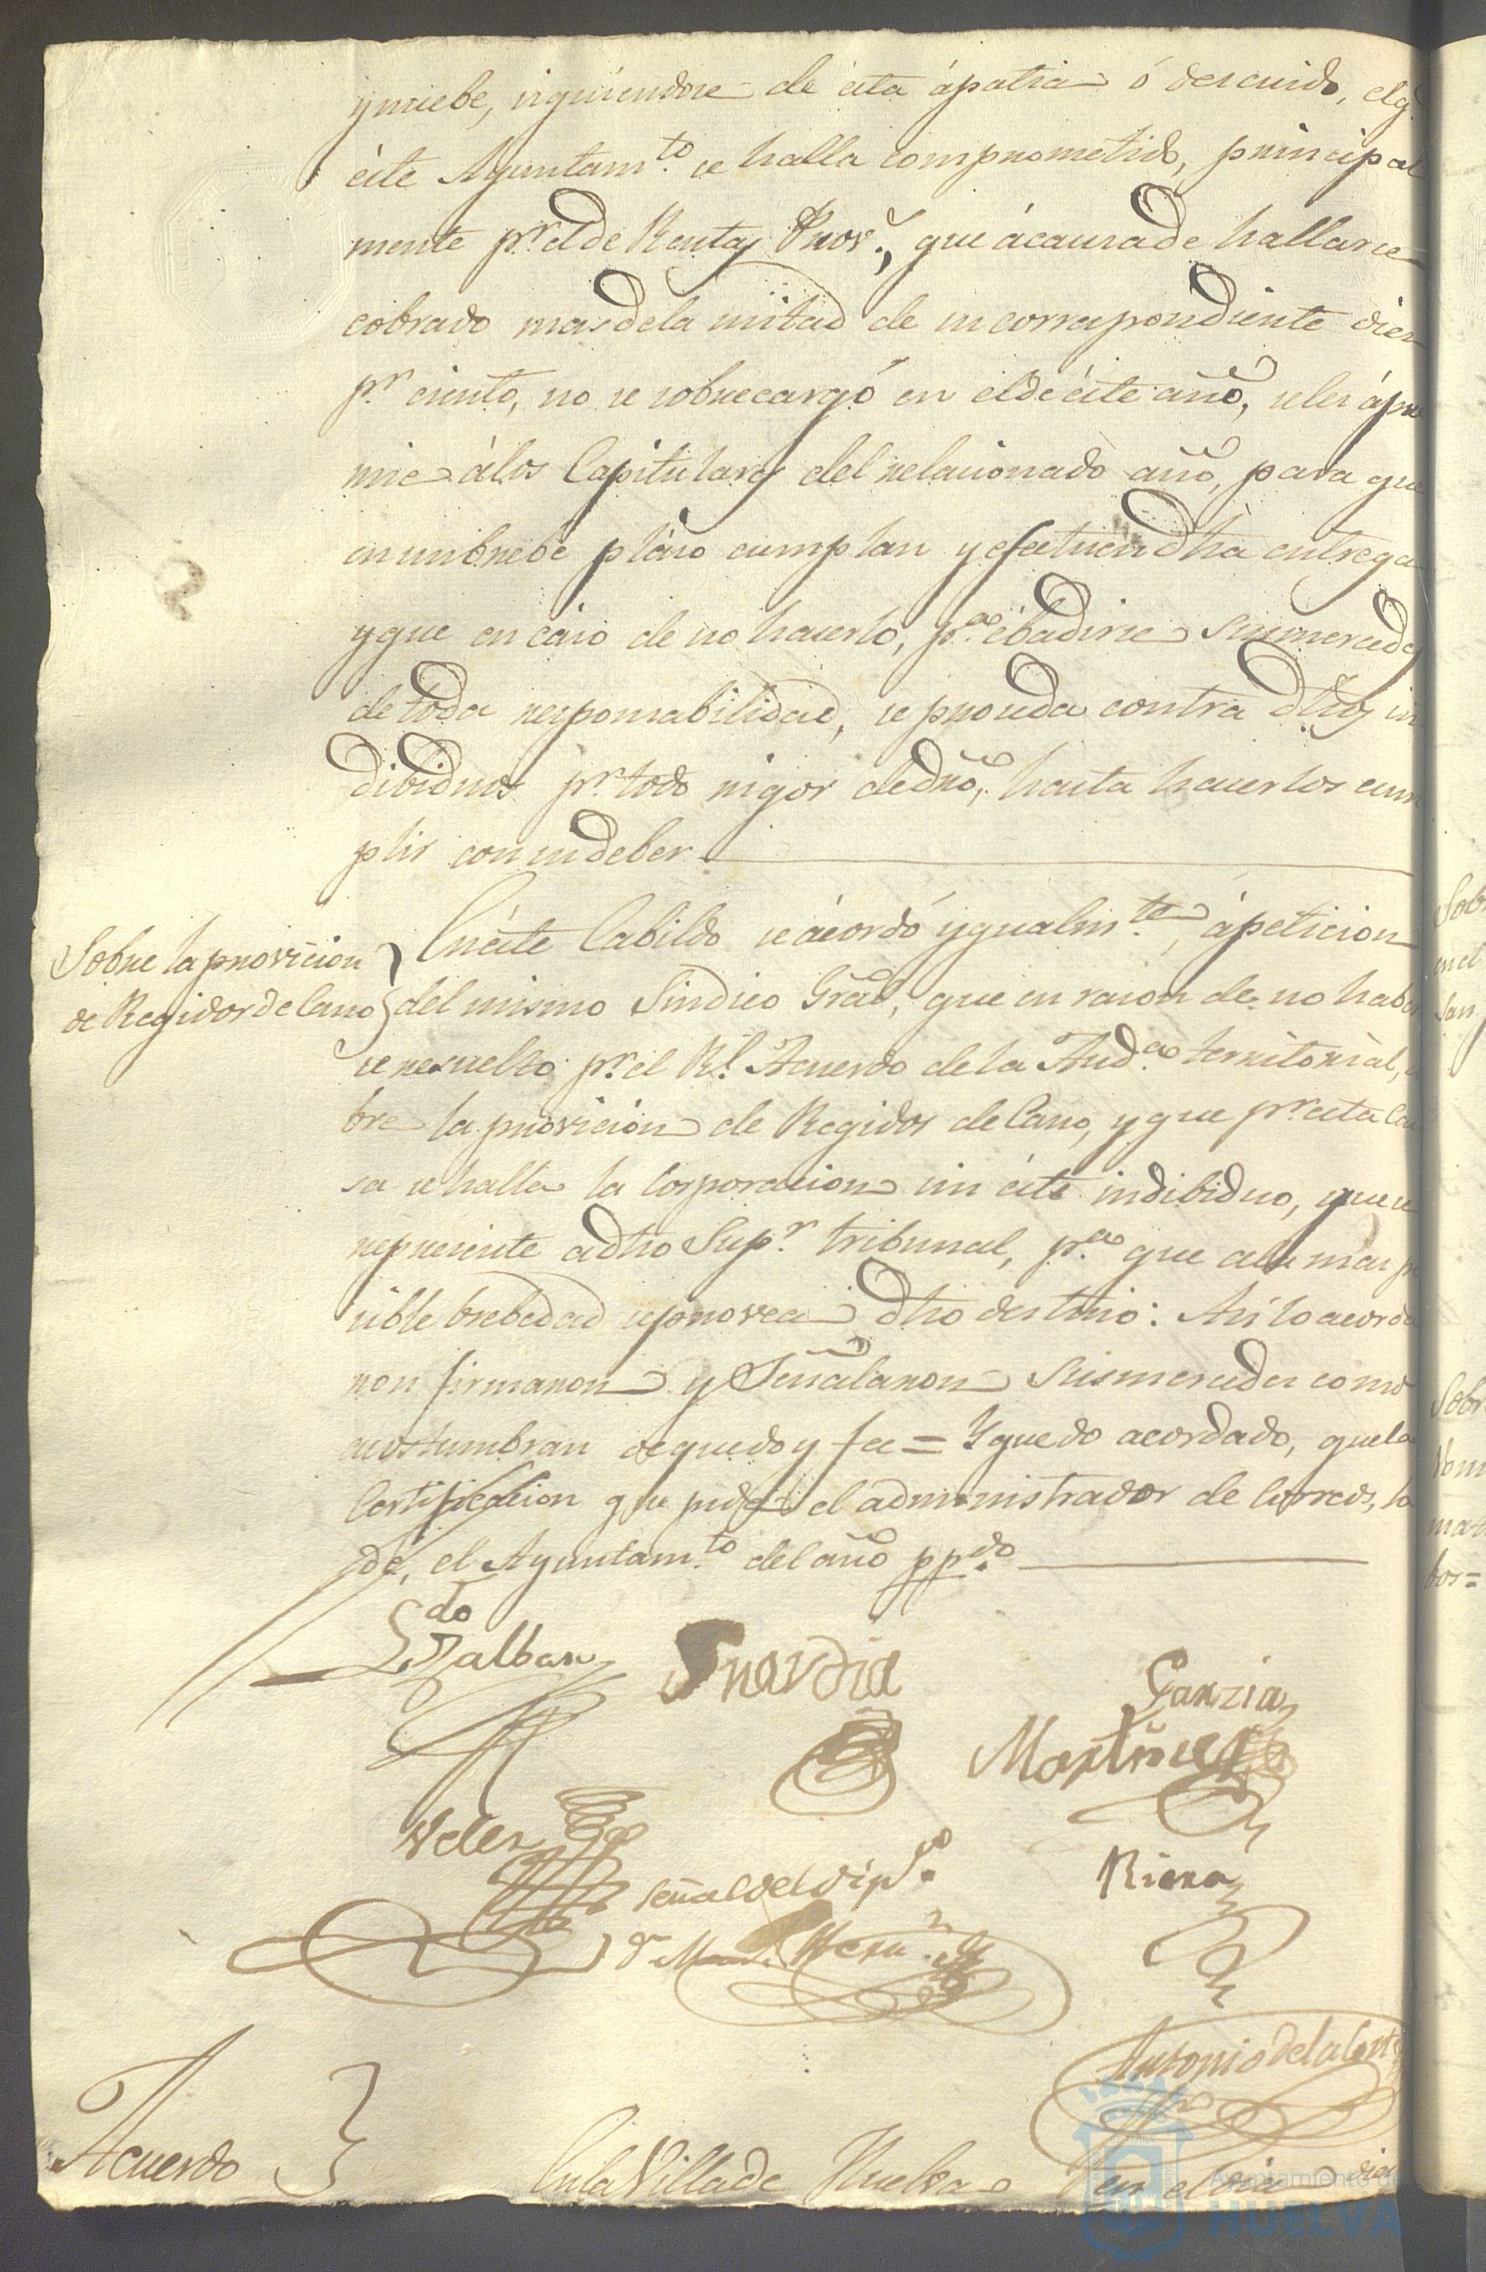 y nuebe, siguiendose de ésta ápatia ó descuido, elq.e
éste Ayuntam.to se halla comprometido, principal
mente p.r el de Rentas Prov.s, que ácausa de hallarse
cobrado mas dela mitad de su correspondiente diez
p.r ciento, no se sobrecargó en el de éste año, seles ápre
mie álos Capitulares del relacionado año, para que
en un brebe pláso cumplan y efectuen dha entrega
y que en cáso de no hacerlo, p.a ébadirse Susmercedes
de toda responsabilidad, se proceda contra dhos in
dibiduos p.r todo rigor de dro, hasta hacerlos cum
plir con su deber
Sobre la provicion
de Regidor de Cano
En éste Cabildo se ácordó ygualm.te, ápeticion
del mismo Sindico Gral, que en rason de no haber
se resuelto p.r el R.l Acuerdo de la Aud.a territorial, so
bre la provicion de Regidor de Cano, y que p.r esta cau
sa se halla la Corporacion sin éste indibiduo, que se
represente a dho Sup.r tribunal, p.a que ala mas po
sible brebedad se provea dho destino: Asi lo acorda
ron firmaron y Señalaron Susmercedes como
acostumbran de quedoy fee = Y quedo acordado, que la
Certificacion que pide el administrador de Correos, la
dé, el Ayuntam.to del año pp.do
L.do Zalban
Guardia
Garzia
Martinez
Velez
señal del dip.do
D.n Man.l Hern.z
Riera
Antonio dela Corte
Acuerdo
En la Villa de Huelva en el dia dies
Ayuntamiento de
HUELVA